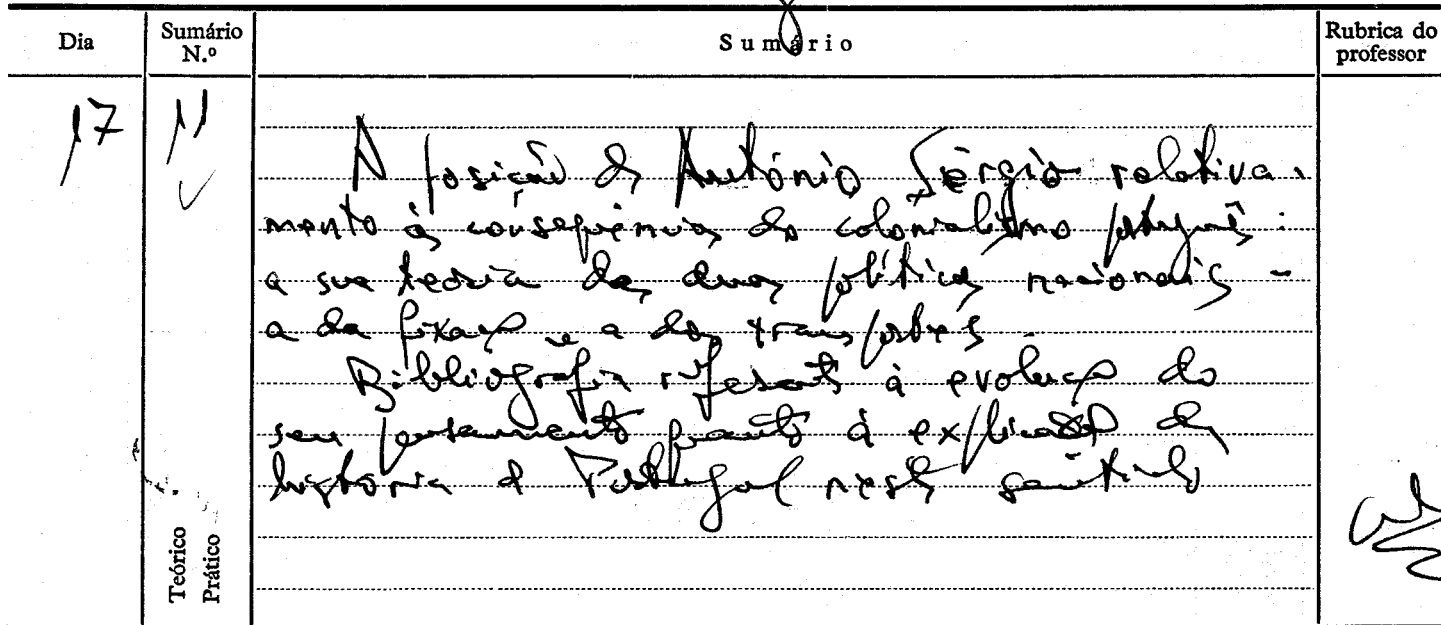 Dia
Sumário N.º
Sumário
Rubrica do professor
17
11
A posição de António Sérgio relativa-
mente às consequências do colonialismo português:
a sua teoria das duas políticas nacionais -
a da fixação e a dos transportes.
Bibliografia referente à evolução do
seu pensamento quanto à explicação da
história de Portugal neste sentido
Teórico
Prático